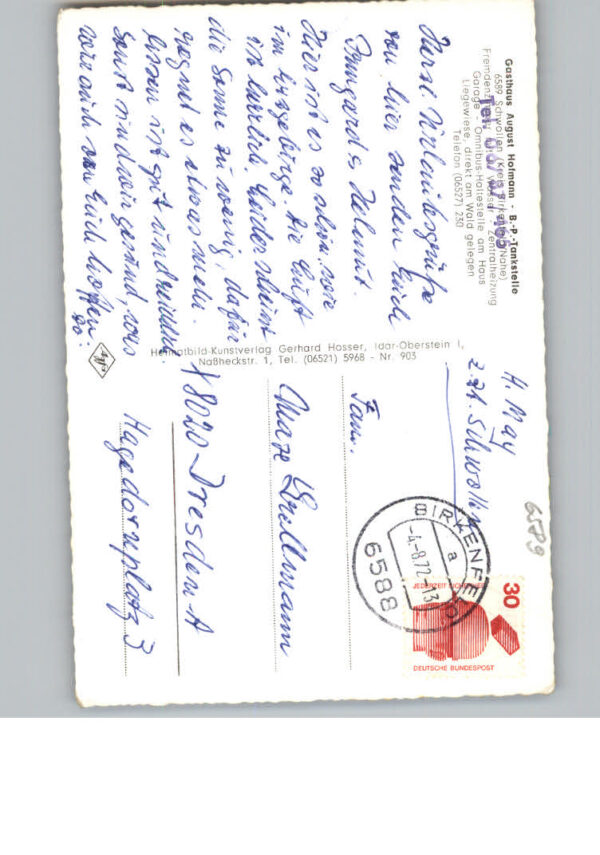 Gasthaus August Hofmann - B.-P.-Tankstelle
6589 Schwollen (Kreis Birkenfeld/Nahe)
Garage - Omnibus-Haltestelle am Haus
Liegewiese, direkt am Wald gelegen
Telefon (06527) 230
Herzl. Urlaubsgrüße
von hier senden Euch
Irmgard & Helmut.
Hier ist es so schön, wie
im Erzgebirge. Die Luft
ist herrlich. Leider scheint
die Sonne zu wenig, dafür
regnet es etwas mehr.
Essen ist gut und reichlich.
Sonst sind wir gesund, was
wir auch von Euch hoffen.
Heimatbild-Kunstverlag Gerhard Hosser, Idar-Oberstein 1,
Naßheckstr. 1, Tel. (06521) 5968 - Nr. 903
Agfa
H. May
z. Zt. Schwollen
6589
BIRKENFELD
a
-4.-8.72-13
6588
30
JEDERZEIT SICHERHEIT
DEUTSCHE BUNDESPOST
Fam.
Max Grellmann
X 8020 Dresden-A
Hagedornplatz 3